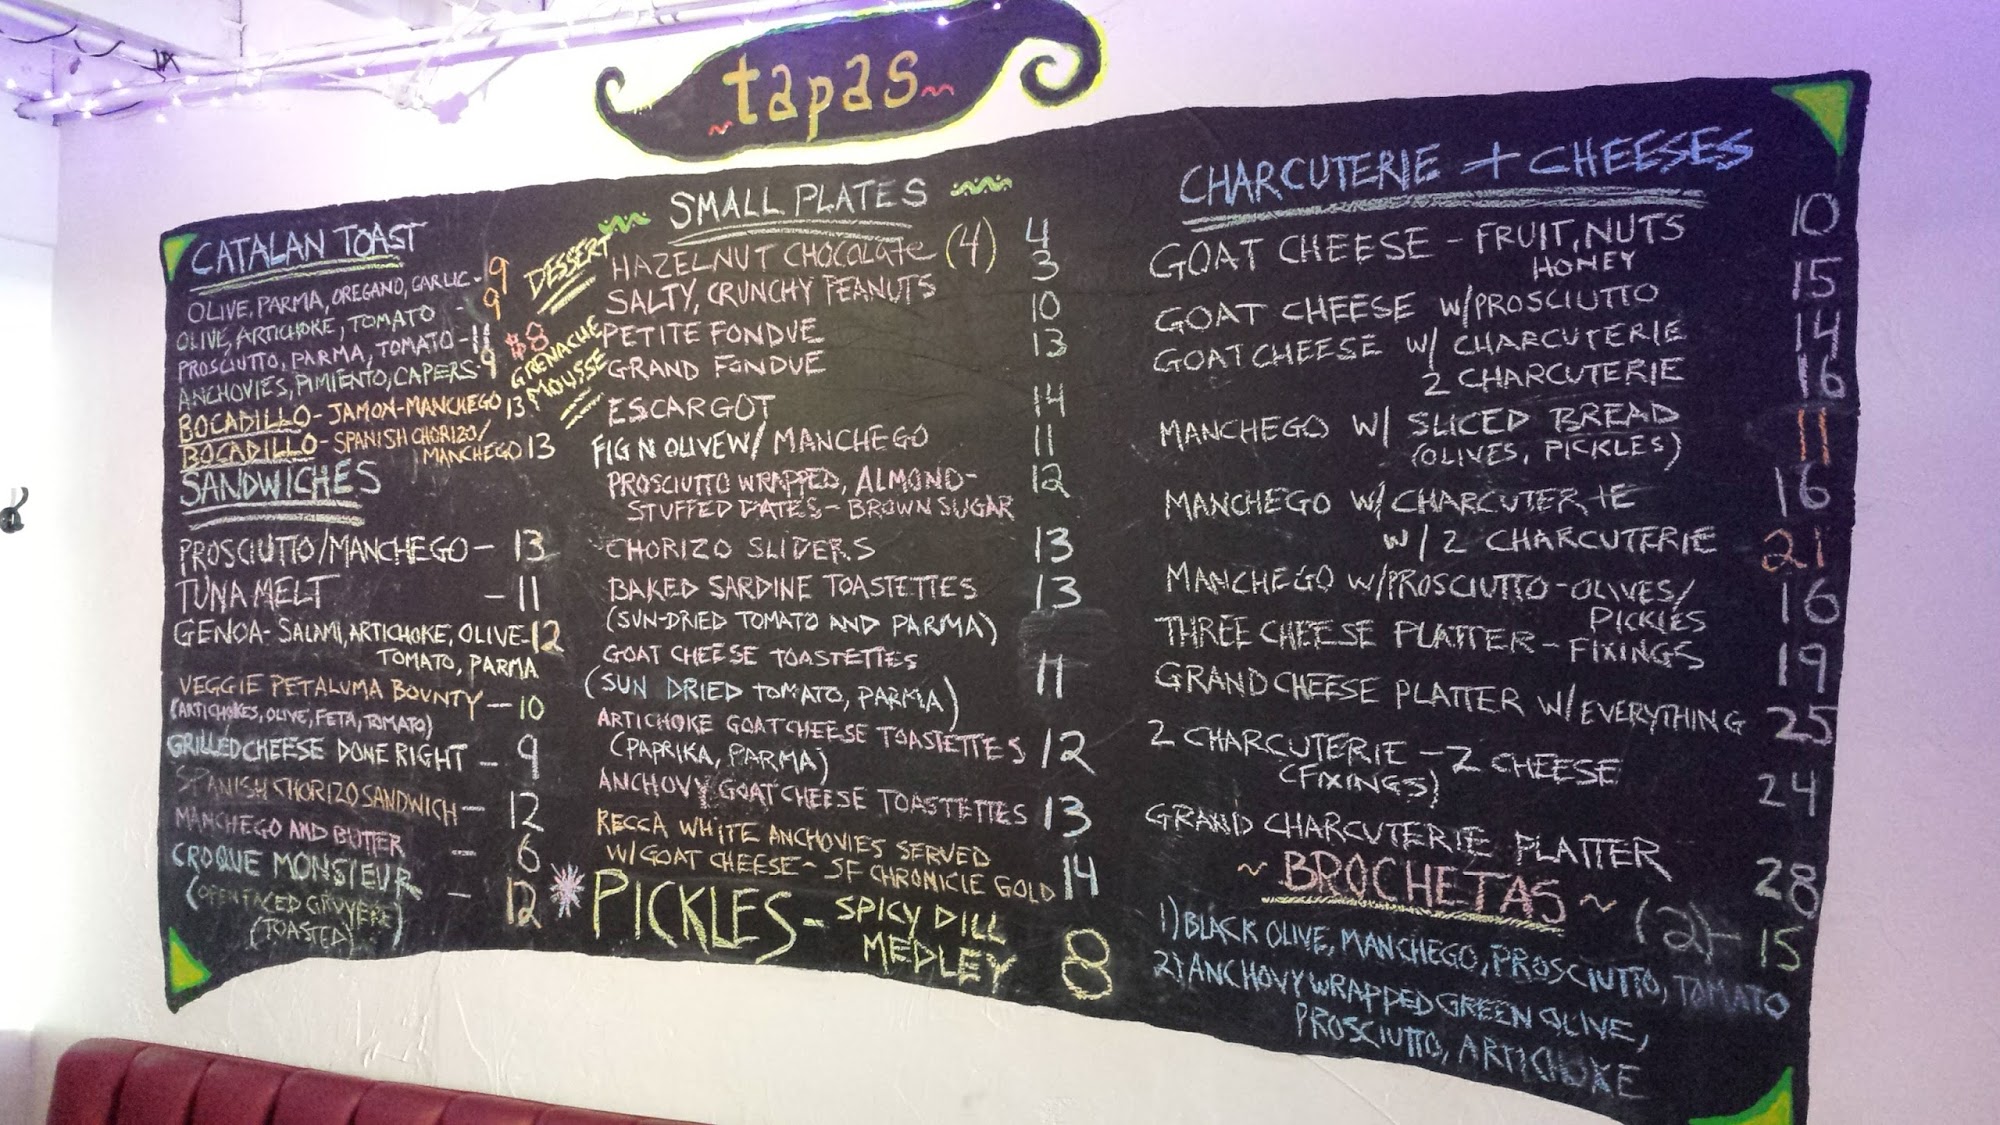 ~tapas~
CATALAN TOAST
OLIVE, PARMA, OREGANO, GARLIC - 9
OLIVE, ARTICHOKE, TOMATO - 9
PROSCIUTTO, PARMA, TOMATO - 11
ANCHOVIES, PIMIENTO, CAPERS 9
BOCADILLO - JAMON-MANCHEGO 13
BOCADILLO - SPANISH CHORIZO/
MANCHEGO 13
SANDWICHES
PROSCIUTTO/MANCHEGO - 13
TUNA MELT - 11
GENOA - SALAMI, ARTICHOKE, OLIVE - 12
TOMATO, PARMA
VEGGIE PETALUMA BOUNTY - 10
(ARTICHOKES, OLIVE, FETA, TOMATO)
GRILLED CHEESE DONE RIGHT - 9
SPANISH CHORIZO SANDWICH - 12
MANCHEGO AND BUTTER - 6
CROQUE MONSIEUR - 12
(OPEN FACED GRUYERE)
(TOASTED)
DESSERT
$8
GRENACHE
MOUSSE
SMALL PLATES
HAZELNUT CHOCOLATE (4) 4
SALTY, CRUNCHY PEANUTS 3
PETITE FONDUE 10
GRAND FONDUE 13
ESCARGOT 14
FIG N OLIVE W/ MANCHEGO 11
PROSCIUTTO WRAPPED, ALMOND- 12
STUFFED DATES - BROWN SUGAR
CHORIZO SLIDERS 13
BAKED SARDINE TOASTETTES 13
(SUN-DRIED TOMATO AND PARMA)
GOAT CHEESE TOASTETTES 11
(SUN DRIED TOMATO, PARMA)
ARTICHOKE GOAT CHEESE TOASTETTES 12
(PAPRIKA, PARMA)
ANCHOVY GOAT CHEESE TOASTETTES 13
RECCA WHITE ANCHOVIES SERVED
W/ GOAT CHEESE - SF CHRONICLE GOLD 14
PICKLES - SPICY DILL
MEDLEY 8
CHARCUTERIE + CHEESES
GOAT CHEESE - FRUIT, NUTS 10
HONEY
GOAT CHEESE W/PROSCIUTTO 15
GOAT CHEESE W/ CHARCUTERIE 14
2 CHARCUTERIE 16
MANCHEGO W/ SLICED BREAD 11
(OLIVES, PICKLES)
MANCHEGO W/ CHARCUTERIE 16
W/ 2 CHARCUTERIE 21
MANCHEGO W/PROSCIUTTO - OLIVES/ 16
PICKLES
THREE CHEESE PLATTER - FIXINGS 19
GRAND CHEESE PLATTER W/ EVERYTHING 25
2 CHARCUTERIE - 2 CHEESE 24
(FIXINGS)
GRAND CHARCUTERIE PLATTER 28
~ BROCHETAS ~ (2) - 15
1) BLACK OLIVE, MANCHEGO, PROSCIUTTO, TOMATO
2) ANCHOVY WRAPPED GREEN OLIVE,
PROSCIUTTO, ARTICHOKE